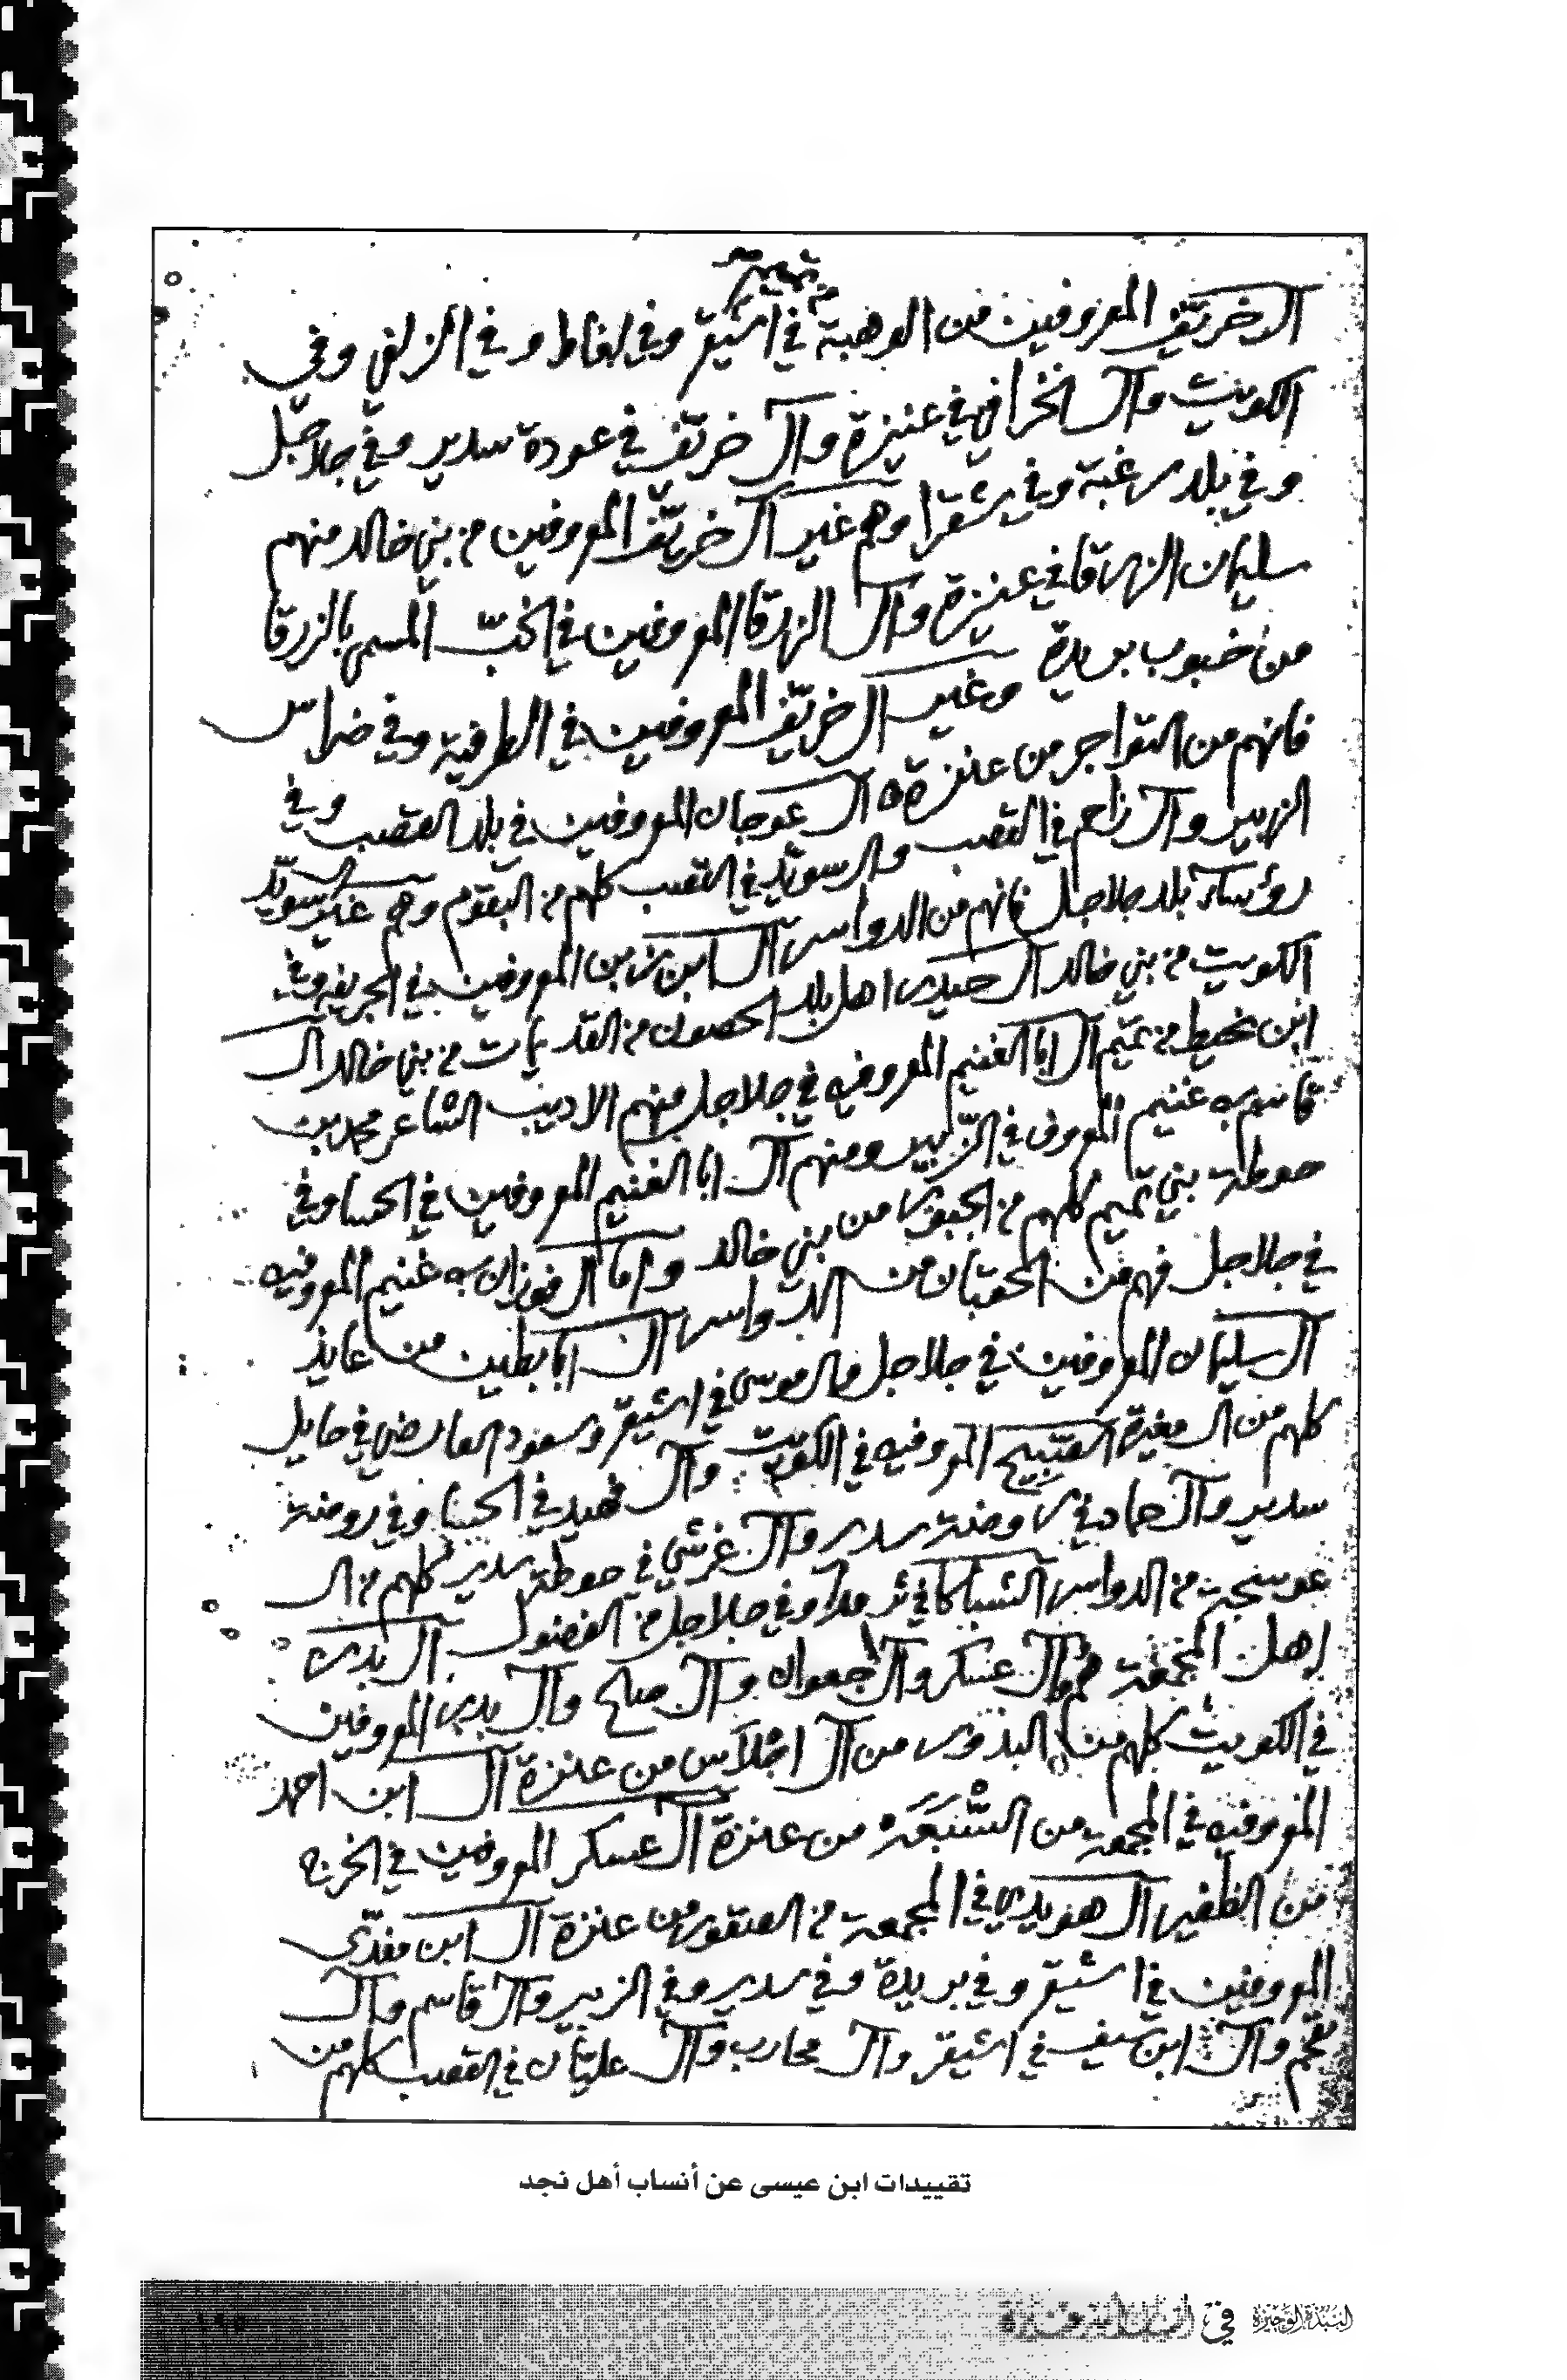 من تميم
آل خريّف المعروفين من الوهبة في اشيقر وفي لغاط وفي الزلفي وفي
الكويت وآل الخرافي في عنيزة وآل خريّف في عودة سدير وفي جلاجل
وفي بلد رغبة وفي شقرا وهم غير آل خريّف المعروفين من بني خالد منهم
سليمان الزرقا في عنيزة وآل الزرقا المعروفين في الخبّ المسمى بالزرقا
من خبوب بريدة وغير آل خريّف المعروفين في الطرفية وفي ضراس
فانهم من التواجر من عنزة آل عوجان المعروفين في بلد القصب وفي
الزبير وآل زاحم في القصب وآل سويّد في القصب كلهم من البقوم وهم غير آل سويّد
رؤساء بلد جلاجل فانهم من الدواسر آل ابن زبن المعروفين في الحريق وفي
الكويت من بني خالد آل حيدر اهل بلد الحصون من القديات من بني خالد آل
ابن نحيط من تميم آل ابا الغنيم المعروفين في جلاجل منهم الاديب الشاعر محمد بن
قاسم بن غنيم المعروف في الزّبير ومنهم آل ابا الغنيم المعروفين في الحسا وفي
حوطة بني تميم كلهم من الجبور من بني خالد واما آل فوزان بن غنيم المعروفين
في جلاجل فهم من الحقبان من الدواسر آل ابابطين من عايذ
آل سليمان المعروفين في جلاجل وآل موسى في اشيقر وسعود العارضي في حايل
كلهم من آل مغيرة القبيح المعروفين في الكويت وآل فهيد في الحسا وفي روضة
سدير وآل حماد في روضة سدير وآل غرشي في حوطة سدير كلهم من آل
عوسجة من الدواسر الشباكا في ثرمدا وفي جلاجل من الفضول آل بدر
اهل المجمعة هم وآل عسكر وآل جعوان وآل صالح وآل بدر المعروفين
في الكويت كلهم من البدور من آل اجلاس من عنزة آل ابن احمد
المعروفين في المجمعة من السَّبَعَه من عنزة آل عسكر المعروفين في الخرج
من الظفير آل هويدي في المجمعة من الصقور من عنزة آل ابن مقدّى
المعروفين في اشيقر وفي بريدة وفي سدير وفي الزبير وآل قاسم وآل
وآل ابن سيف في اشيقر وآل محارب وآل عليّان في القصب كلهم من
تقييدات ابن عيسى عن أنساب أهل نجد
النبذة الوجيزة في أنساب أسر عنيزة